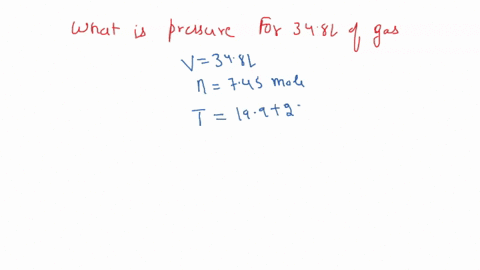 What is pressure for 34.8L of gas
V = 34.8L
n = 7.45 mole
T = 19.9+2